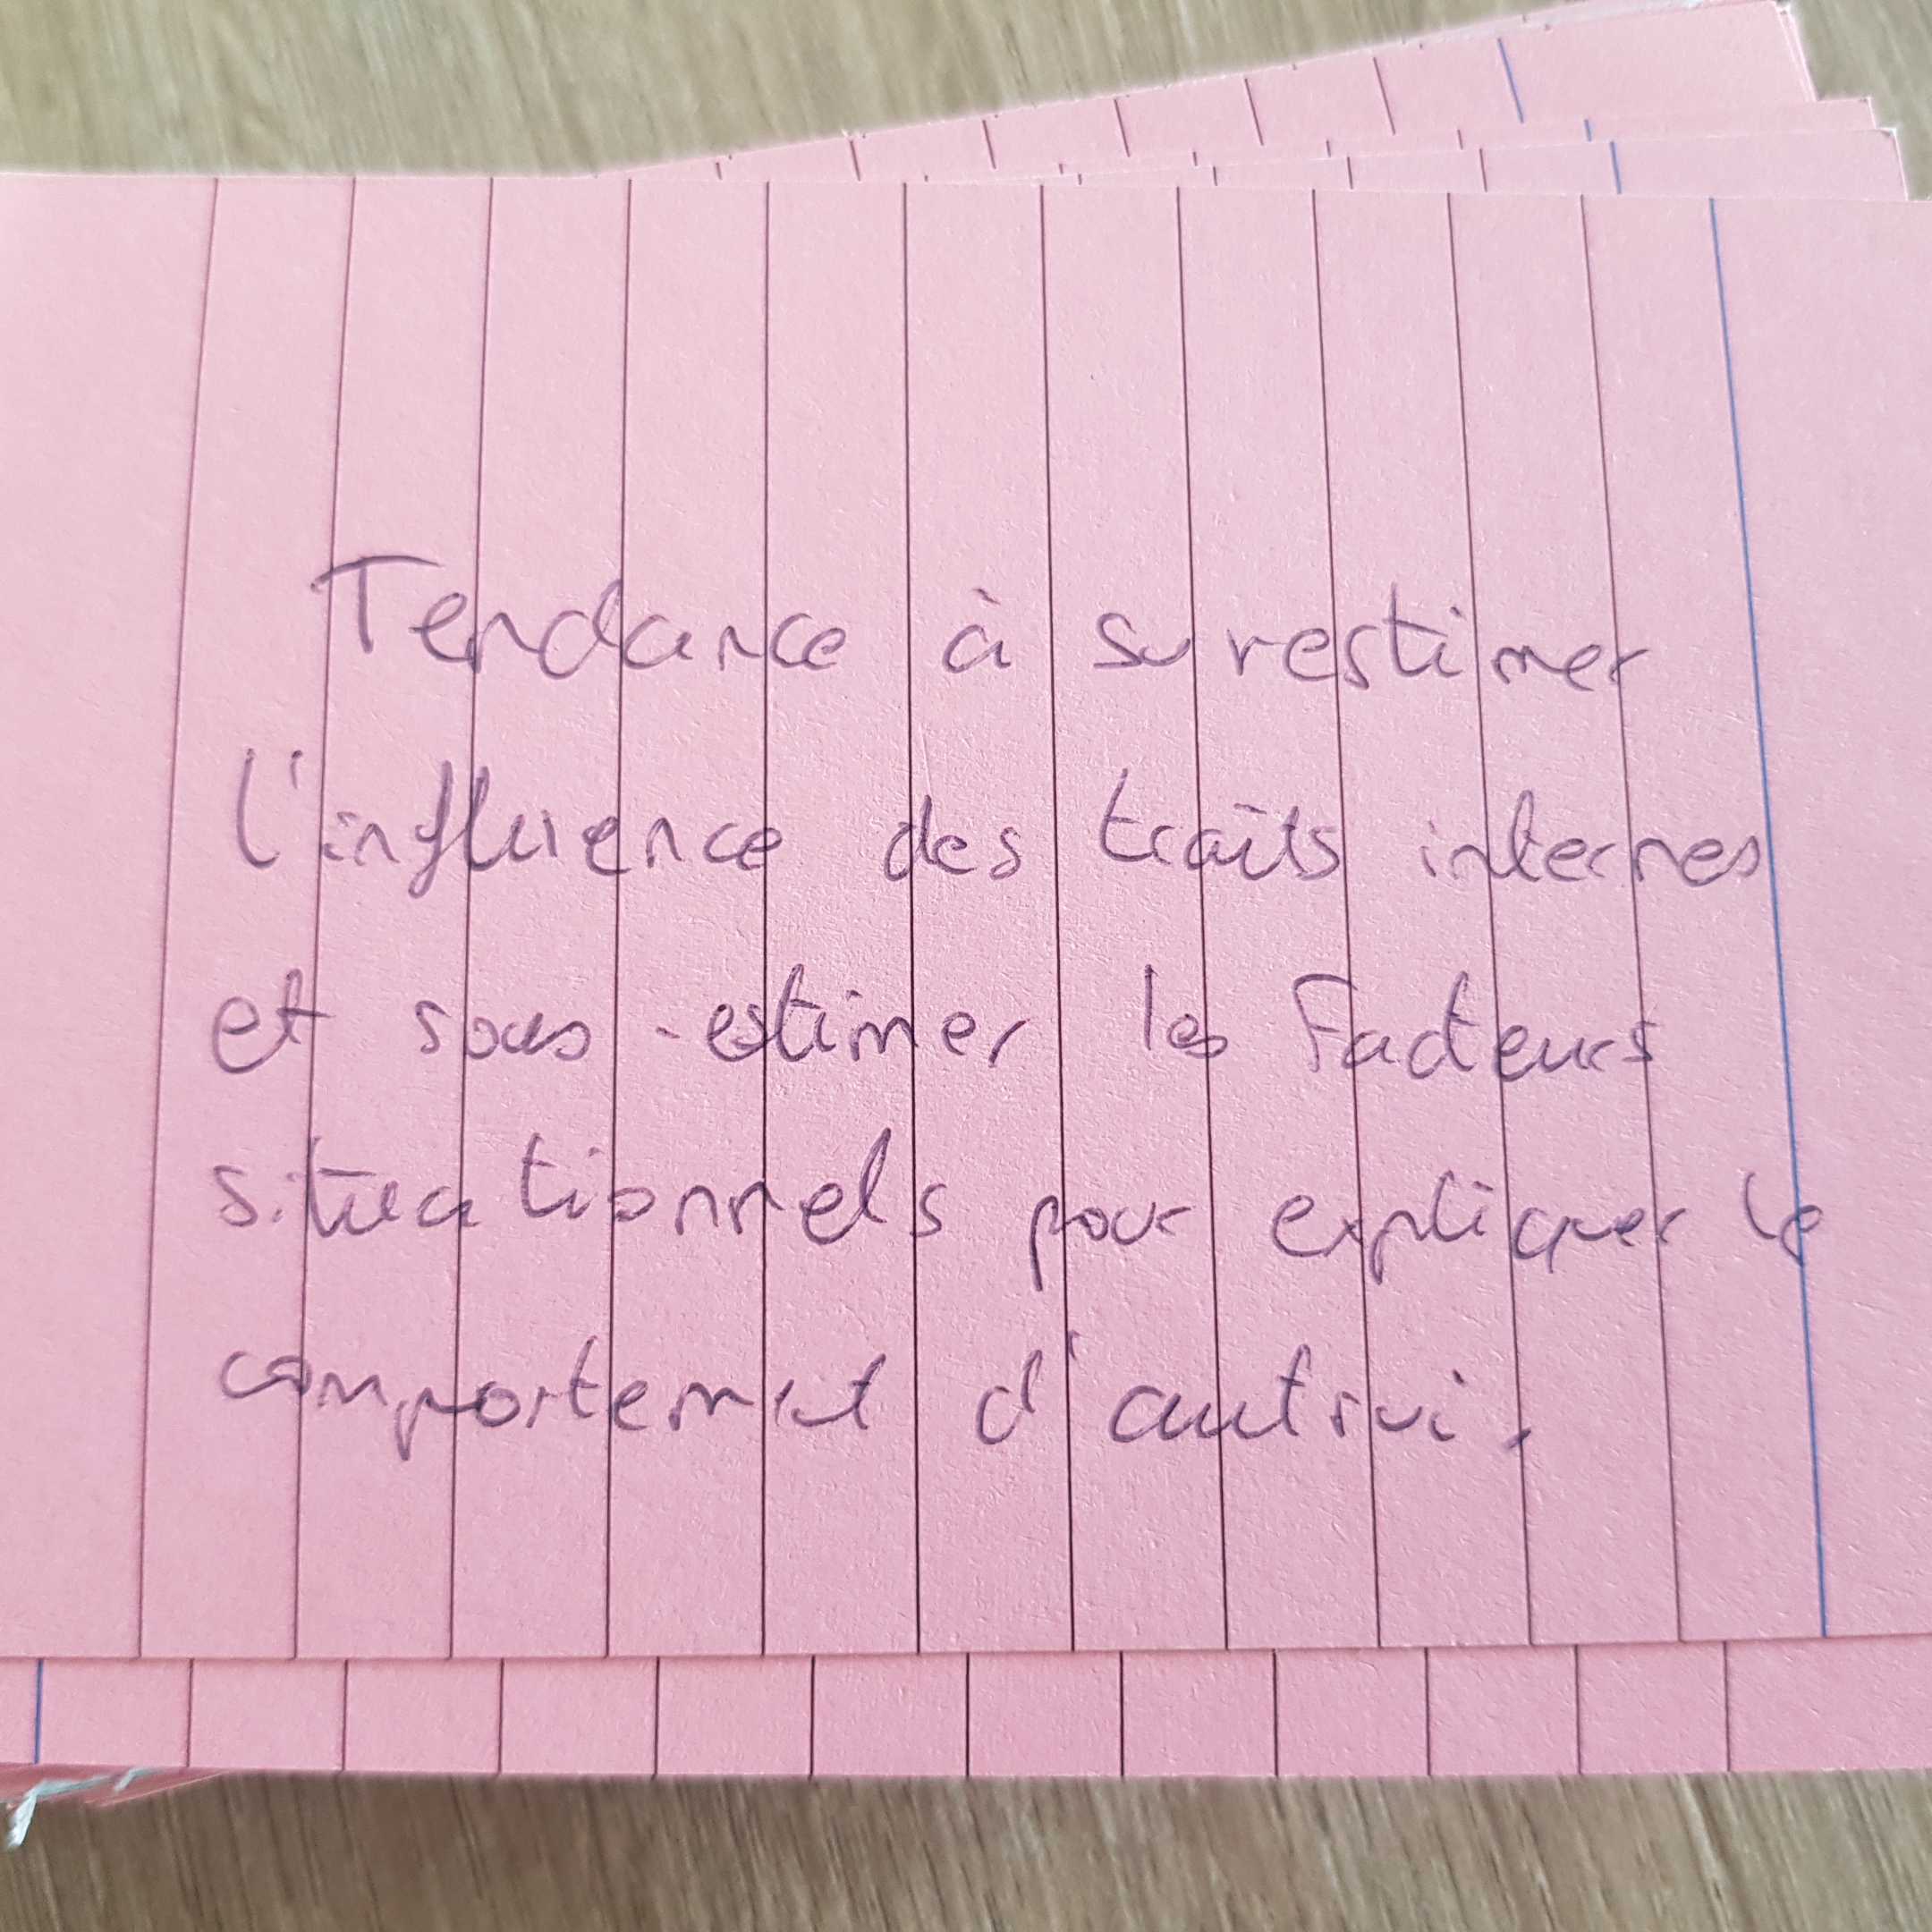 Tendance à surestimer
l'influence des traits internes
et sous-estimer les facteurs
situationnels pour expliquer le
comportement d'autrui.